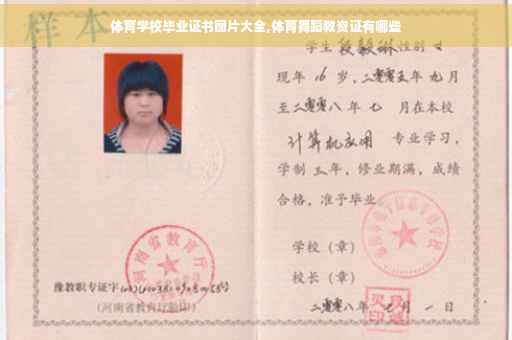 体育学校毕业证书图片大全,体育舞蹈教资证有哪些
样本
学生 性别 女
现年 16 岁,二零零五年 九 月
至二零零八年 七 月在本校
计算机应用 专业学习,
学制 三 年,修业期满,成绩
合格,准予毕业
学校(章)
校长(章)
二零零八年 月 一 日
河南省教育厅
豫教职专证字
(河南省教育厅验印)